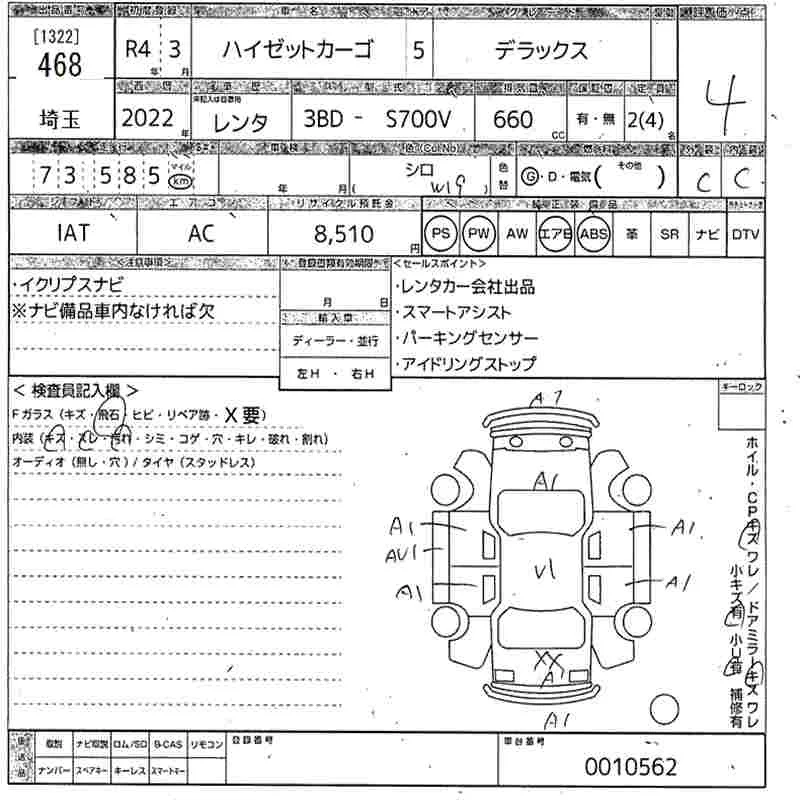 出品番号 初度登録 車名 ドア
[1322]
468
R4 年 3 月 ハイゼットカーゴ 5 デラックス
評価点
4
埼玉
西暦 車歴 型式 排気量 保証書 定員
2022 年 未記入は自家用 レンタ 3BD - S700V 660 CC 有・無 2(4) 名
車検 色(Col No) 燃料 外装 内装
73,585 マイル km 年 月 ( シロ W19 ) 色替 Ⓖ・D・電気( その他 ) C C
シフト エアコン リサイクル預託金
IAT AC 8,510 円 PS PW AW エアB ABS 革 SR ナビ DTV
<注意事項> 登録書類有効期限 <セールスポイント>
・イクリプスナビ
※ナビ備品車内なければ欠
月 日
輸入車
ディーラー・並行
左H ・ 右H
・レンタカー会社出品
・スマートアシスト
・パーキングセンサー
・アイドリングストップ
< 検査員記入欄 >
Fガラス (キズ・飛石・ヒビ・リペア跡・X要)
内装 (キズ・スレ・汚れ・シミ・コゲ・穴・キレ・破れ・割れ)
オーディオ (無し・穴) / タイヤ (スタッドレス)
キーロック
A7
A1
A1 A1
AU1
U1
A1 A1
XX
A1
A1
ホイル・CPキズワレ/ドアミラーキズワレ
小キズ有 小U有 補修有
返送品 取説 ナビ取説 ロム/SD B-CAS リモコン 登録番号 車台番号
ナンバー スペアキー キーレス スマートキー 0010562